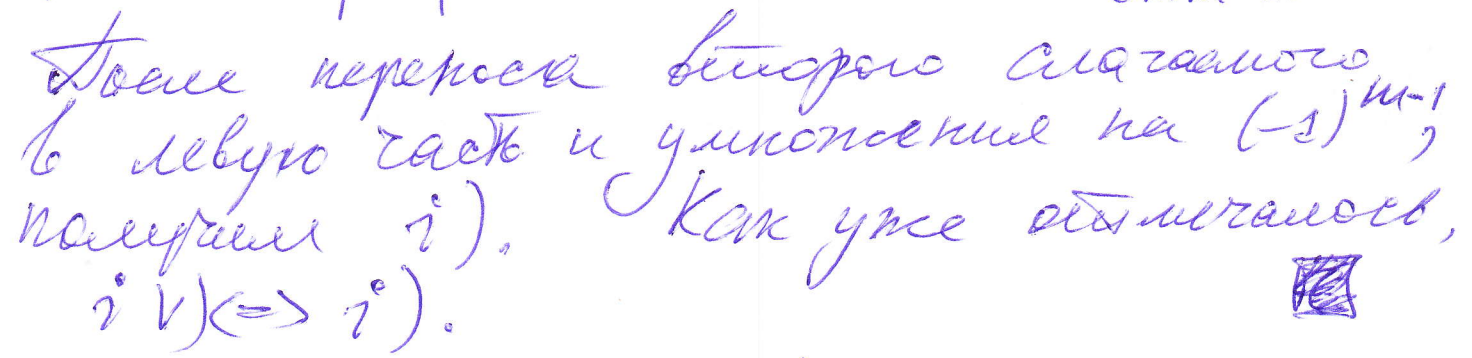 После переноса второго слагаемого
в левую часть и умножения на (-1)^{m-1},
получим i). Как уже отмечалось,
iv) <=> i).